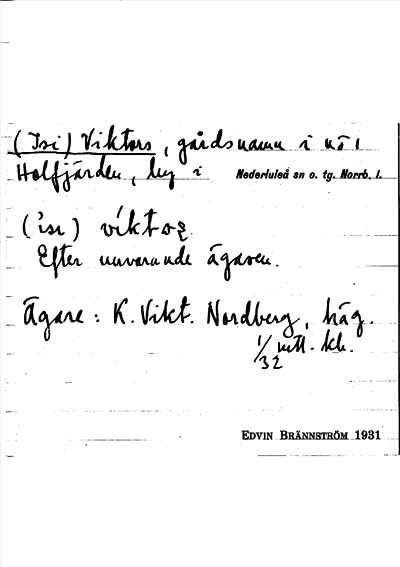 (Isi) Viktors, gårdsnamn i nr 1
Holfjärden, by i Nederluleå sn o. tg. Norrb. l.
(isı) víktoȥ
Efter nuvarande ägaren.
Ägare: K. Vikt. Nordberg, häg.
1/32 mtl. kr.
EDVIN BRÄNNSTRÖM 1931